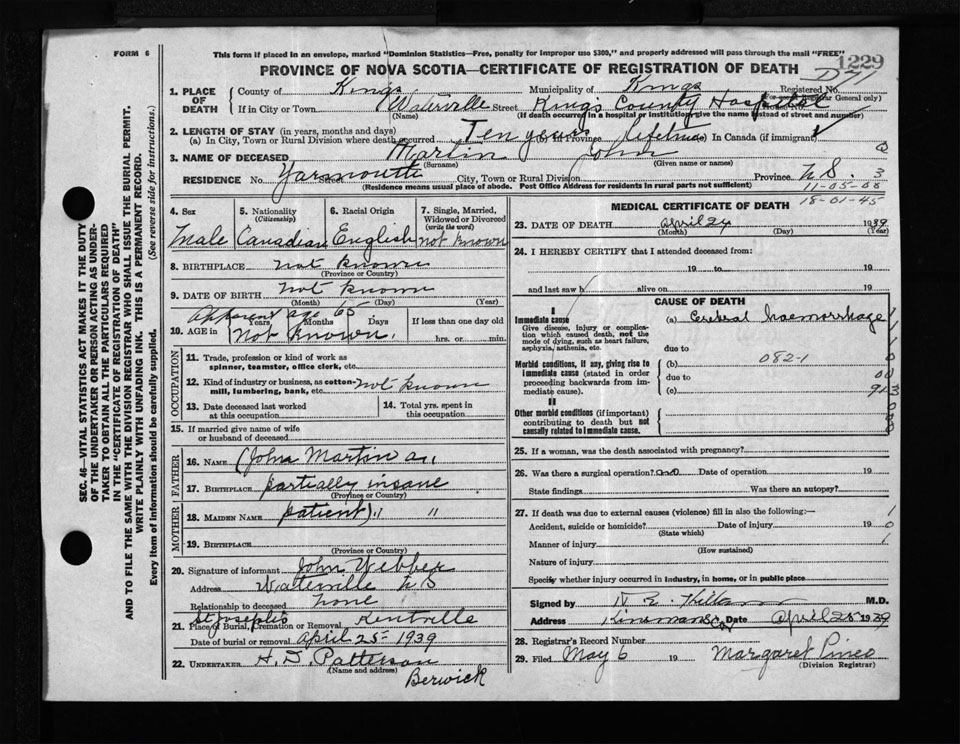 FORM 6
This form if placed in an envelope, marked "Dominion Statistics—Free, penalty for improper use $300," and properly addressed will pass through the mail "FREE"
1229
PROVINCE OF NOVA SCOTIA—CERTIFICATE OF REGISTRATION OF DEATH
SEC. 46—VITAL STATISTICS ACT MAKES IT THE DUTY
OF THE UNDERTAKER OR PERSON ACTING AS UNDER-
TAKER TO OBTAIN ALL THE PARTICULARS REQUIRED
IN THE "CERTIFICATE OF REGISTRATION OF DEATH"
AND TO FILE THE SAME WITH THE DIVISION REGISTRAR WHO SHALL ISSUE THE BURIAL PERMIT.
WRITE PLAINLY WITH UNFADING INK. THIS IS A PERMANENT RECORD.
Every item of information should be carefully supplied. (See reverse side for instructions.)
1. PLACE OF DEATH County of Kings Municipality of Kings Registered No.
(For use of Registrar General only)
If in City or Town Waterville Street Kings County Hospital House No.
(Name) (If death occurred in a hospital or institution give the name instead of street and number)
2. LENGTH OF STAY (in years, months and days)
(a) In City, Town or Rural Division where death occurred Ten years (b) In Province Lifetime (c) In Canada (if immigrant)
3. NAME OF DECEASED Martin John
(Surname) (Given name or names)
RESIDENCE No. Yarmouth Street City, Town or Rural Division Province N S. 3
(Residence means usual place of abode. Post Office Address for residents in rural parts not sufficient)
11-05-08
18-01-45
4. Sex Male
5. Nationality (Citizenship) Canadian
6. Racial Origin English
7. Single, Married, Widowed or Divorced (write the word) not known
8. BIRTHPLACE not known
(Province or Country)
9. DATE OF BIRTH not known
(Month) (Day) (Year)
Apparent age 65
10. AGE in Years Months Days If less than one day old
not known. hrs. or min.
OCCUPATION
11. Trade, profession or kind of work as spinner, teamster, office clerk, etc.
12. Kind of industry or business, as cotton-mill, lumbering, bank, etc. not known
13. Date deceased last worked at this occupation
14. Total yrs. spent in this occupation
15. If married give name of wife or husband of deceased
FATHER
16. NAME (John Martin a
17. BIRTHPLACE partially insane
(Province or Country)
MOTHER
18. MAIDEN NAME patient) " "
19. BIRTHPLACE
(Province or Country)
20. Signature of informant John Webber
Address Waterville N S
Relationship to deceased none
St Josephs
21. Place of Burial, Cremation or Removal Kentville
Date of burial or removal April 25 1939
22. UNDERTAKER H. D. Patterson
(Name and address)
Berwick
MEDICAL CERTIFICATE OF DEATH
23. DATE OF DEATH April 24 1939
(Month) (Day) (Year)
24. I HEREBY CERTIFY that I attended deceased from:
19 to 19
and last saw h alive on 19
CAUSE OF DEATH
I
Immediate cause (a) Cerebral haemorrhage
Give disease, injury or complication which caused death, not the mode of dying, such as heart failure, asphyxia, asthenia, etc.
due to
082-1
Morbid conditions, if any, giving rise to immediate cause (stated in order proceeding backwards from immediate cause).
(b)
due to
(c)
II
Other morbid conditions (if important) contributing to death but not causally related to immediate cause.
25. If a woman, was the death associated with pregnancy?
26. Was there a surgical operation? no Date of operation 19
State findings Was there an autopsy?
27. If death was due to external causes (violence) fill in also the following:—
Accident, suicide or homicide? Date of injury 19
(State which)
Manner of injury
(How sustained)
Nature of injury
Specify whether injury occurred in industry, in home, or in public place
Signed by M.D.
Address Kinsmans Co Date April 25 1939
28. Registrar's Record Number
29. Filed May 6 19 Margaret Pineo
(Division Registrar)